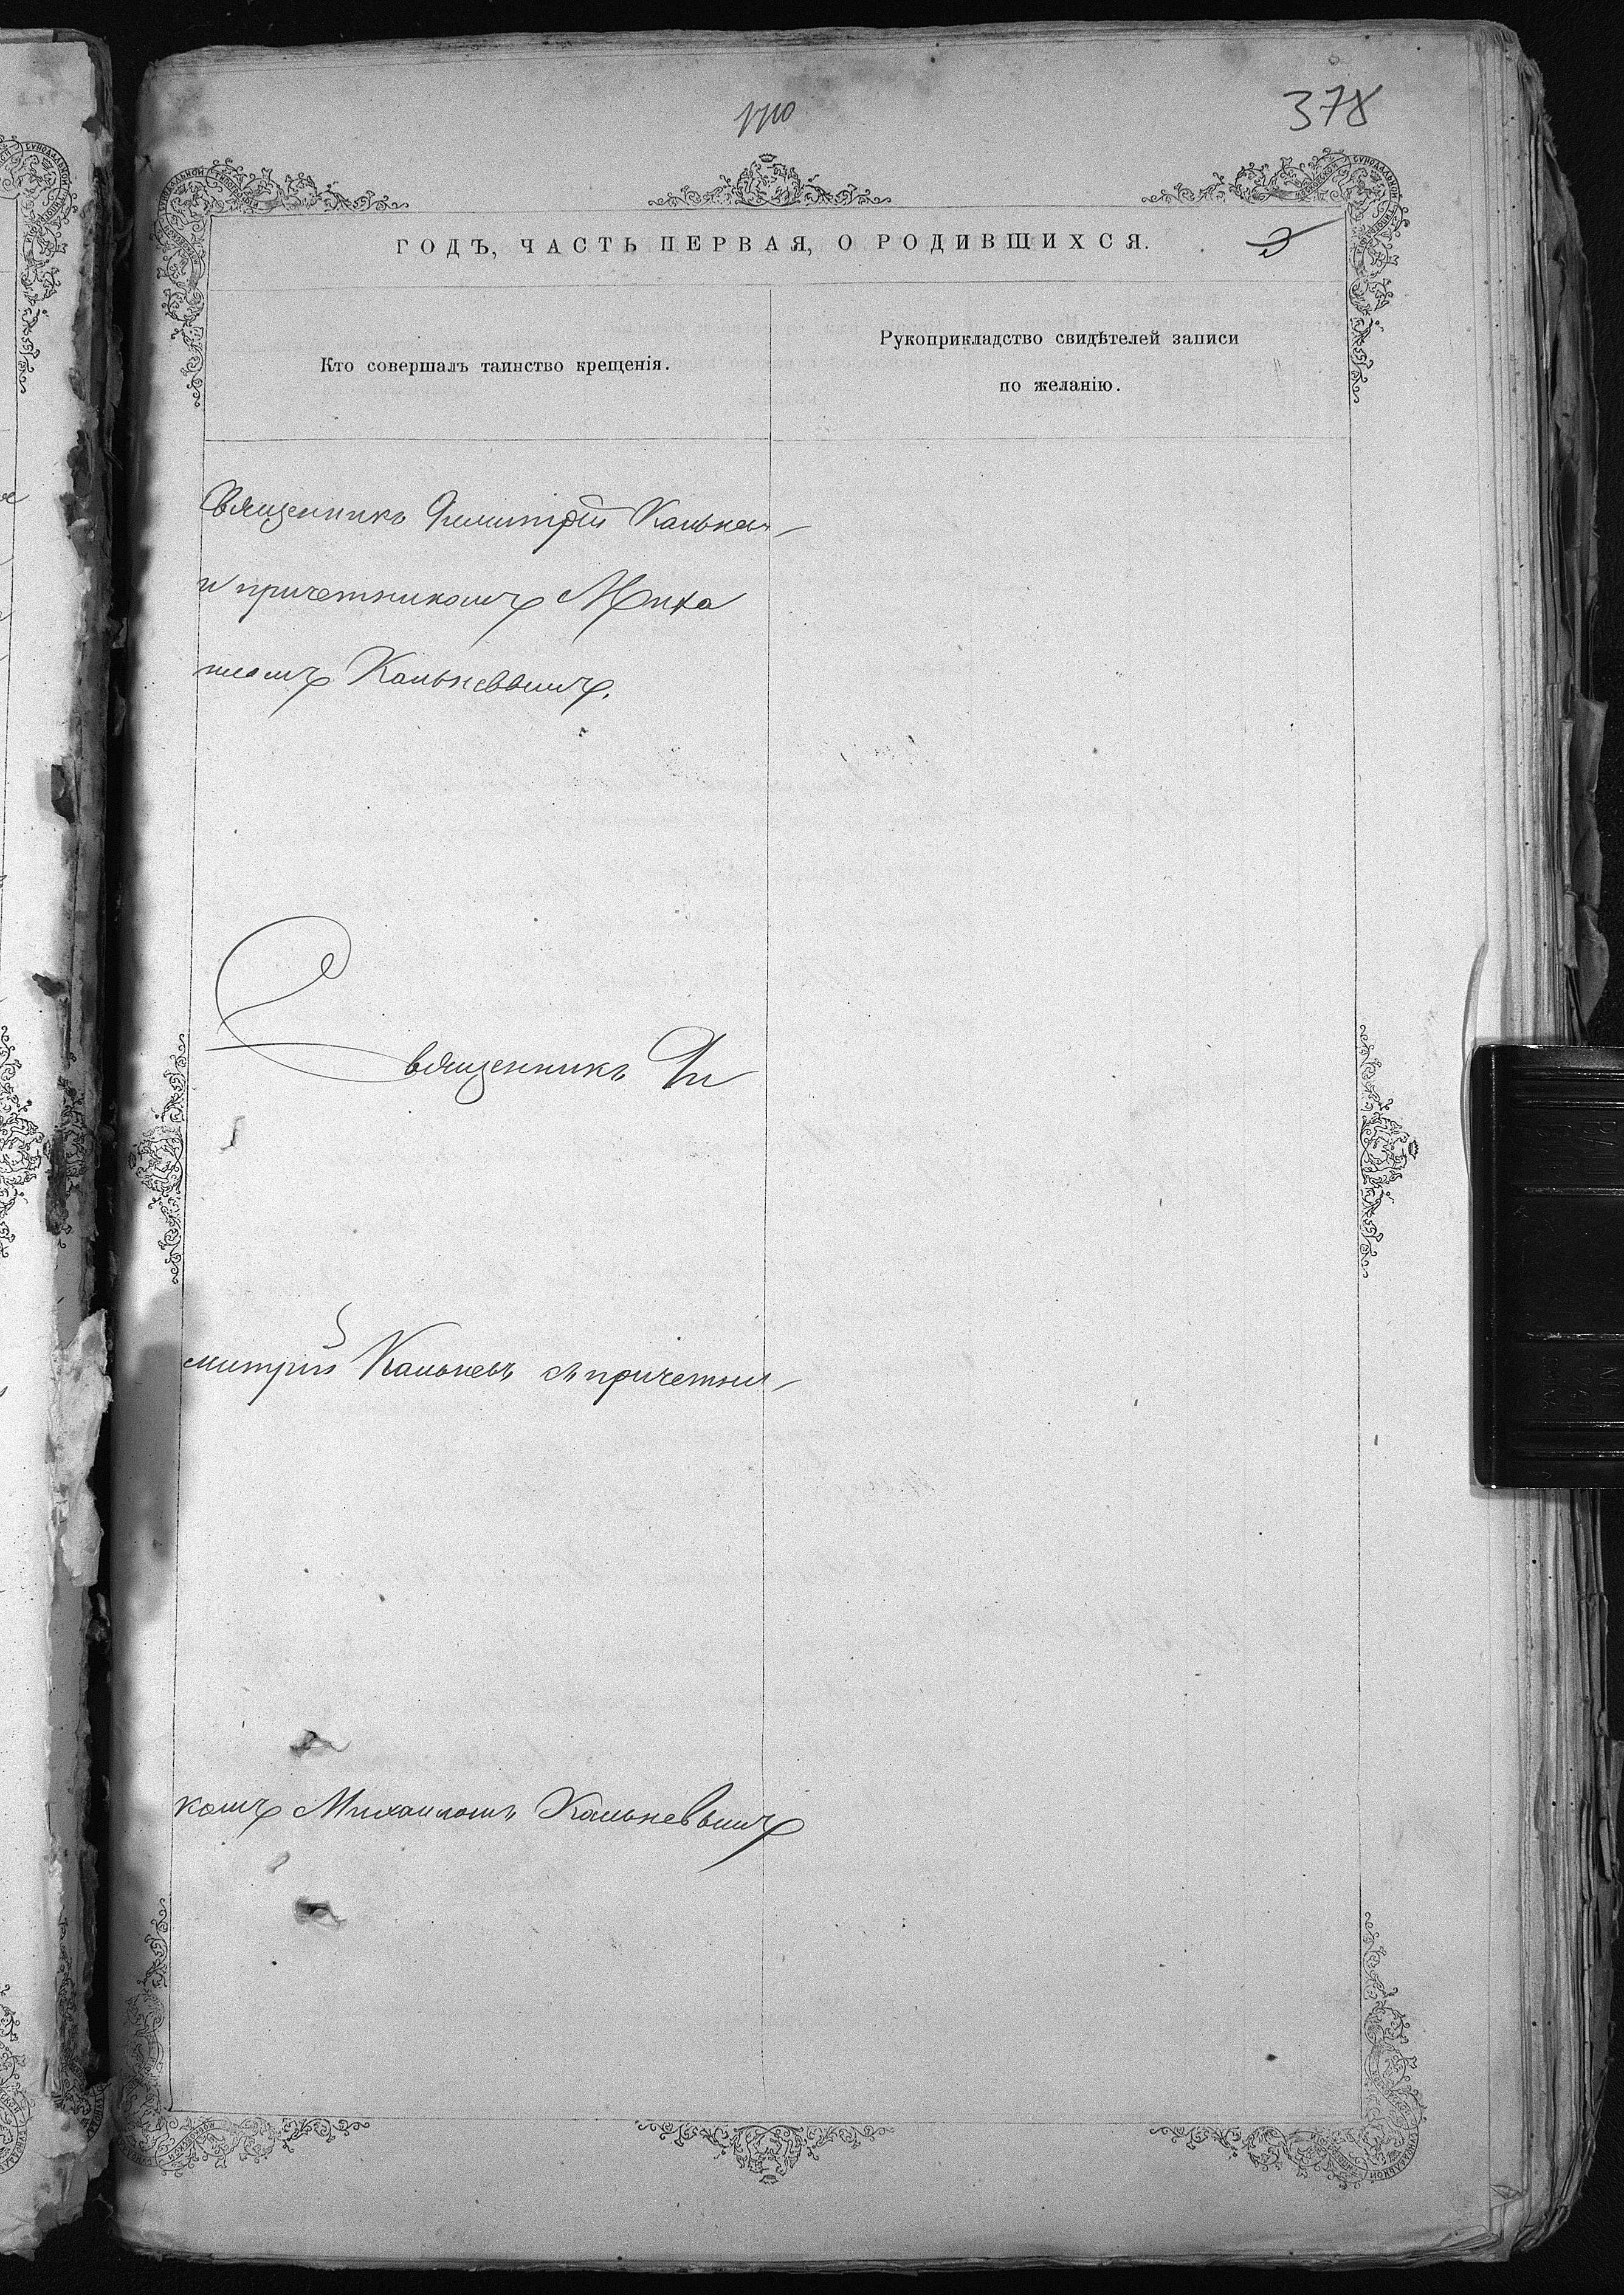 378
ГОДЪ, ЧАСТЬ ПЕРВАЯ, О РОДИВШИХСЯ.
Кто совершалъ таинство крещенія.
Рукоприкладство свидѣтелей записи
по желанію.
Священникъ Димитрій
и причетникомъ Миха
иломъ Кальневымъ.
Священникъ Ди
митрій Кальневъ съ причетни-
комъ Михаиломъ Кальневымъ